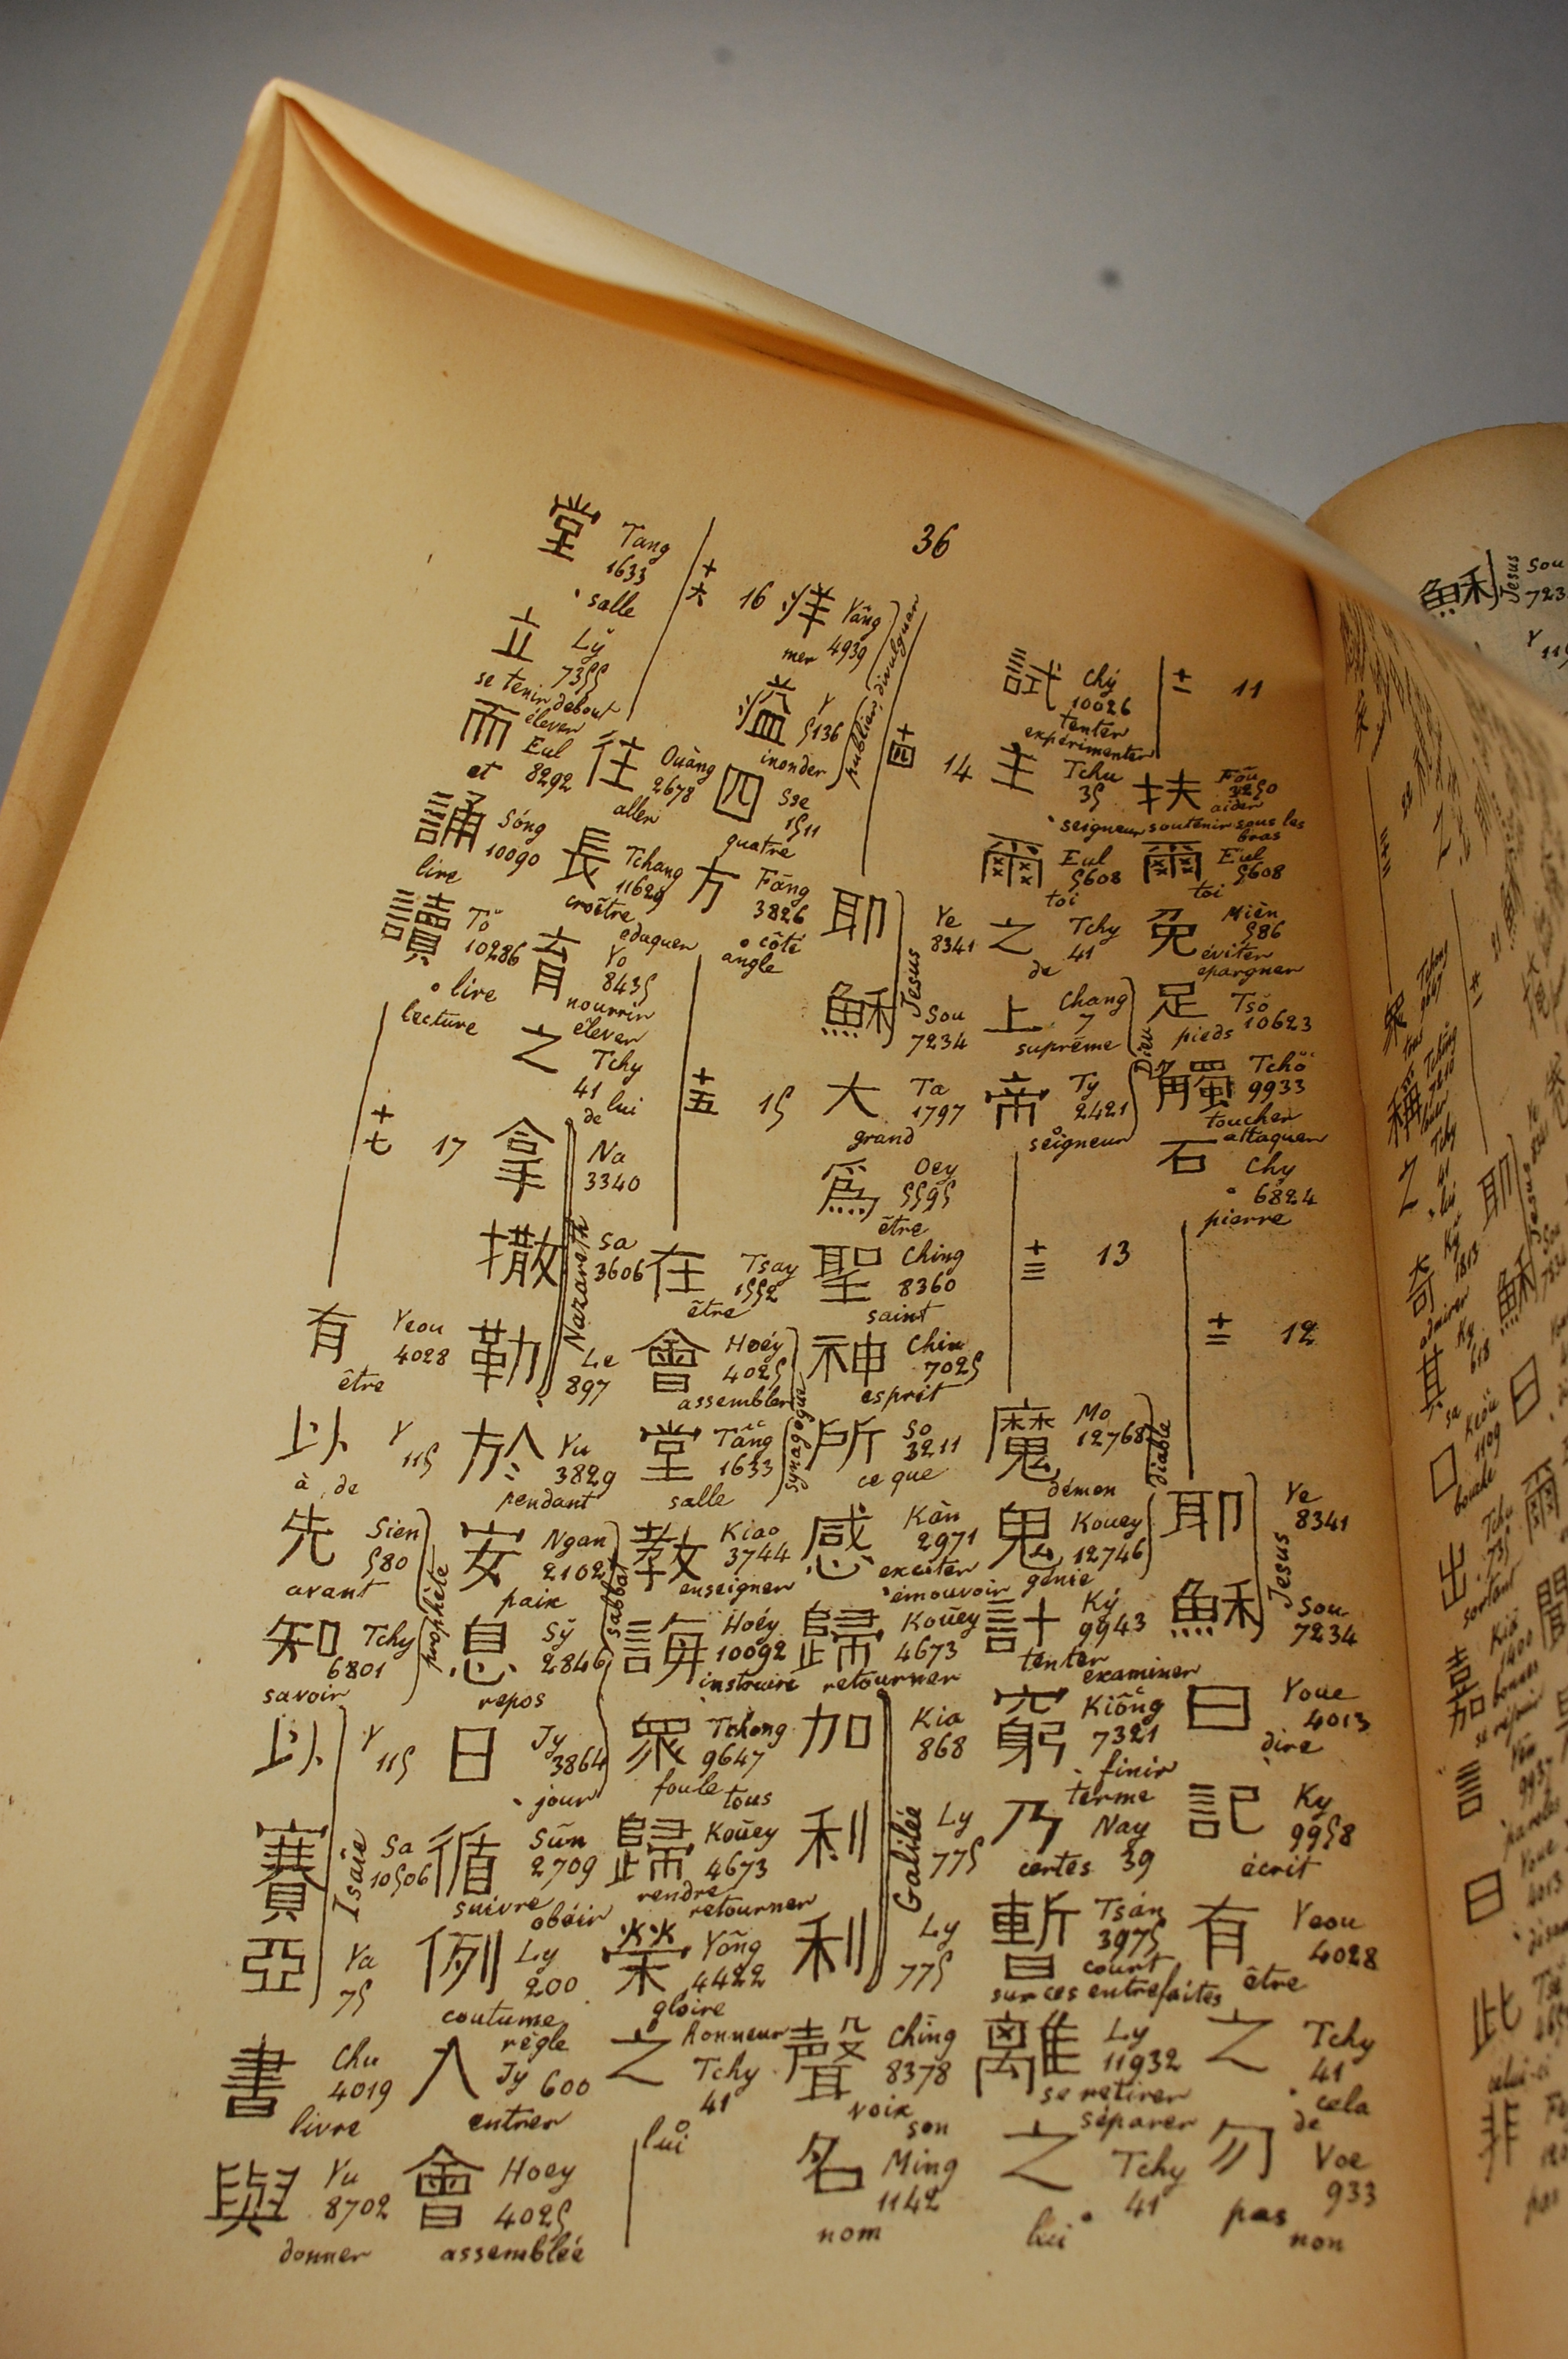 36
十一 11
扶 Foû 3250 aider soutenir sous les bras
爾 Eul 5608 toi
免 Mièn 586 éviter epargner
足 Tsŏ 10623 pieds
觸 Tchŏ 9933 toucher attaquer
石 Chy 6824 pierre
十二 12
耶 Ye 8341
穌 Sou 7234
Jesus
曰 Youe 4013 dire
記 Ky 9958 écrit
有 Yeou 4028 être
之 Tchy 41 cela de
勿 Voe 933 pas non
試 Chý 10026 tenter expérimenter
主 Tchu 35 seigneur
爾 Eul 5608 toi
之 Tchy 41 de
上 Chang 7 suprême
帝 Ty 2421 seigneur
Dieu
十三 13
魔 Mo 12768 démon
鬼 Kouey 12746 génie
diable
計 Ký 9943 tenter examiner
窮 Kiông 7321 finir terme
乃 Nay 39 certes
暫 Tsán 3975 court sur ces entrefaites
離 Ly 11932 se retirer séparer
之 Tchy 41 lui
十四 14
耶 Ye 8341
穌 Sou 7234
Jesus
大 Ta 1797 grand
爲 Oey 5595 être
聖 Ching 8360 saint
神 Chin 7025 esprit
所 So 3211 ce que
感 Kàn 2971 exciter émouvoir
歸 Kouey 4673 retourner
加 Kia 868
利 Ly 775
利 Ly 775
Galilée
聲 Ching 8378 voix son
名 Ming 1142 nom
洋 Yâng 4939 mer
溢 Y 5136 inonder
publier, divulguer
四 Sse 1511 quatre
方 Fāng 3826 côté angle
十五 15
在 Tsay 1552 être
會 Hoéy 4025 assembler
堂 Tâng 1633 salle
synagogue
教 Kiao 3744 enseigner
誨 Hoéy 10092 instruire
衆 Tchong 9647 foule tous
歸 Kouey 4673 rendre retourner
榮 Yông 4422 gloire honneur
之 Tchy 41 lui
十六 16
往 Ouàng 2678 aller
長 Tchang 11629 croître
育 Yo 8435 eduquer nourrir élever
之 Tchy 41 lui de
拿 Na 3340
撒 Sa 3606
勒 Le 897
Nazareth
於 Yu 3829 pendant
安 Ngan 2102 paix
息 Sy 2846 repos
日 Jy 3864 jour
sabbat
循 Sûn 2709 suivre obéir
例 Ly 200 coutume règle
入 Jy 600 entrer
會 Hoey 4025 assemblée
堂 Tang 1633 salle
立 Ly 7355 se tenir debout élever
而 Eul 8292 et
誦 Sóng 10090 lire
讀 Tŏ 10286 lire lecture
十七 17
有 Yeou 4028 être
以 Y 115 à, de
先 Sien 580 avant
知 Tchy 6801 savoir
prophète
以 Y 115
賽 Sa 10506
亞 Ya 75
Isaïe
書 Chu 4019 livre
與 Yu 8702 donner